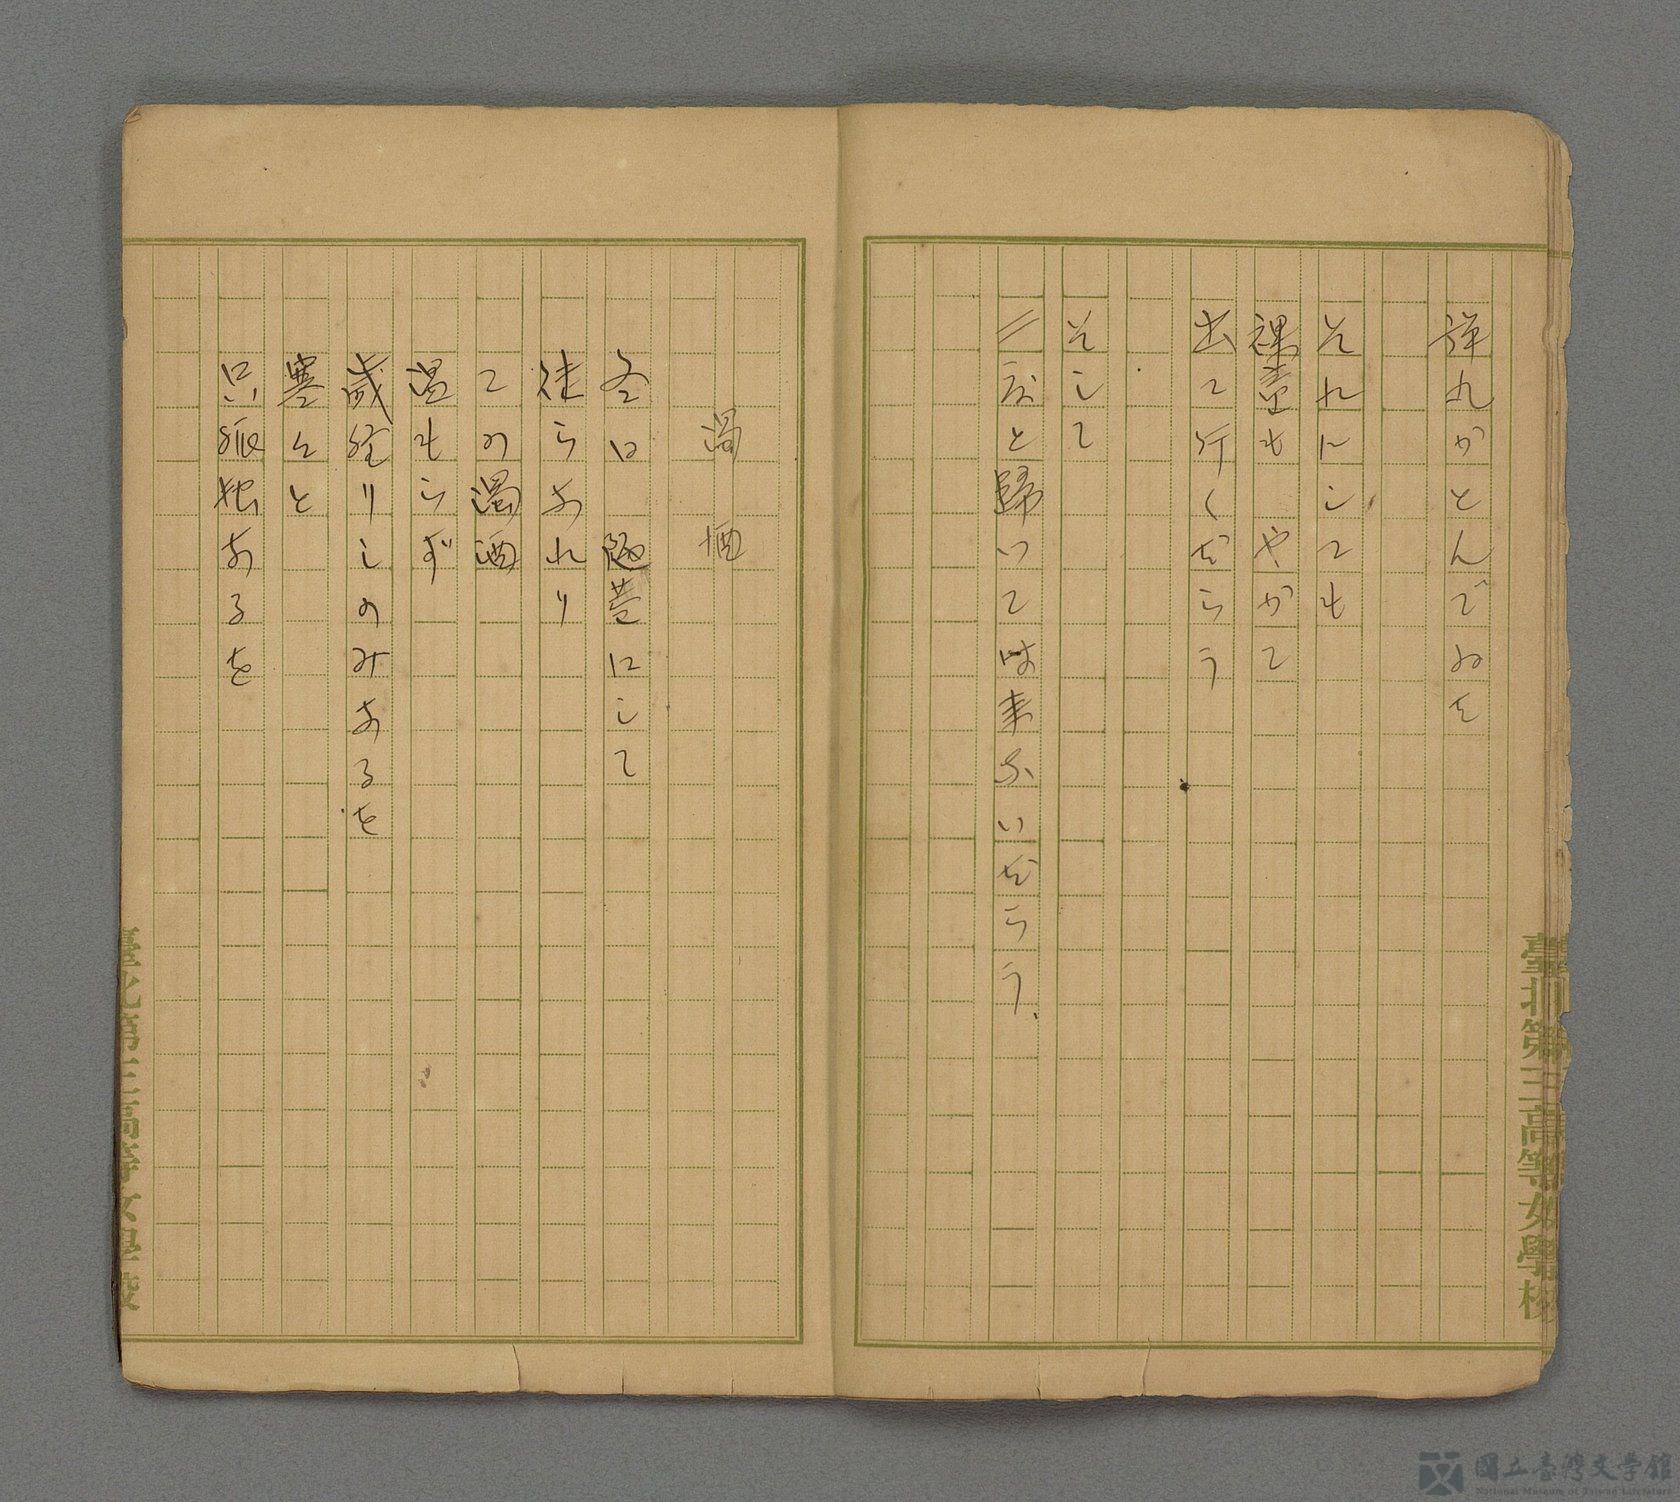 弾丸がとんでゐる
それにしても
裸童も やがて
出て行くだらう
そして
二度と歸いては來ないだらう
濁酒
冬は 陋巷にして
徒らなれり
この濁酒
温もらず
歳経りしのみなるを
寒々と
只孤独なるを
臺北第三高等女學校
臺北第三高等女學校
國立臺灣文學館
National Museum of Taiwan Literature